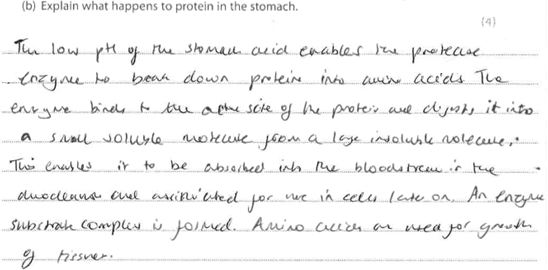 (b) Explain what happens to protein in the stomach.
(4)
The low pH of the stomach acid enables the protease
enzyme to break down protein into amino acids The
enzyme binds to the active site of the protein and digests it into
a small soluble molecule from a large insoluble molecule.
This enables it to be absorbed into the bloodstream in the
duodenum and assimilated for use in cells later on. An enzyme
substrate complex is formed. Amino acids are used for growth
of tissues.